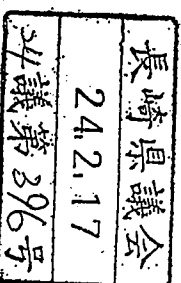 長崎県議会
24.2.17
議第396号